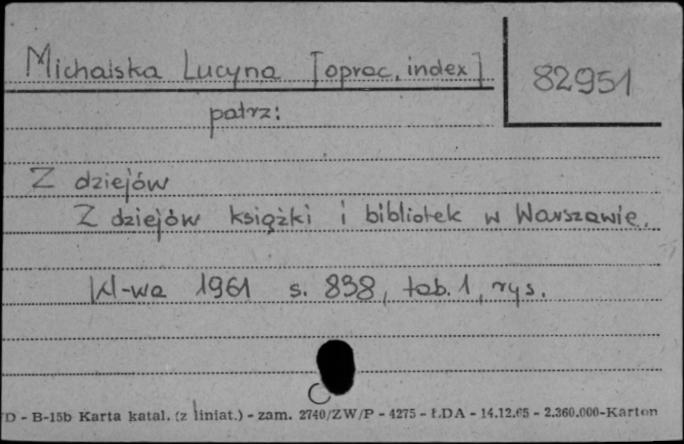 Michalska Lucyna [oprac. index]
82951
patrz:
Z dziejów
Z dziejów książki i bibliotek w Warszawie.
W-wa 1961 s. 838, tab. 1, rys.
D - B-15b Karta katal. (z liniat.) - zam. 2740/ZW/P - 4275 - ŁDA - 14.12.65 - 2.360.000-Karton